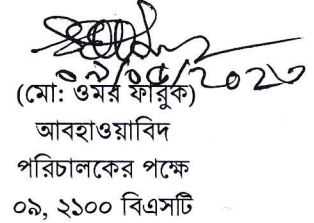 ০৯/০৫/২০২৩
(মো: ওমর ফারুক)
আবহাওয়াবিদ
পরিচালকের পক্ষে
০৯, ২১০০ বিএসটি